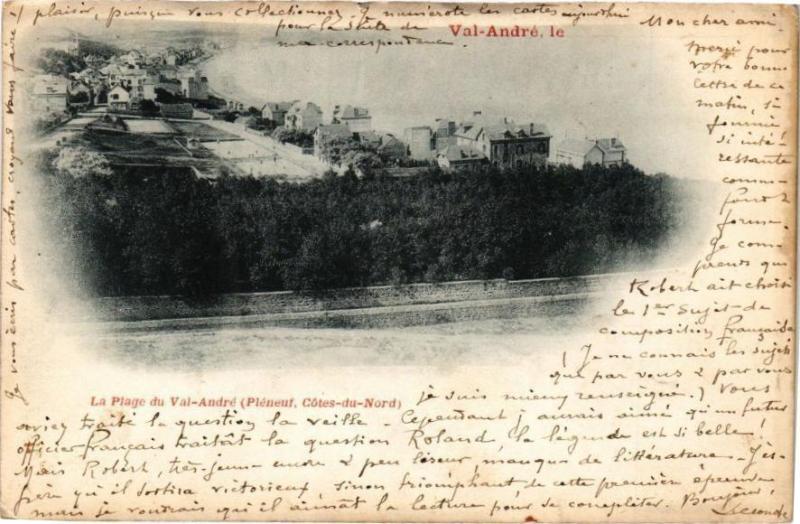 Val-André, le
Mon cher ami.
merci pour
votre bonne
lettre de ce
matin, si
fournie,
si inté-
ressante
comme
fond &
forme.
Je com-
prends que
Robert ait choisi
le 1er Sujet de
composition française
(Je ne connais les sujets
que par vous & par vous
je suis mieux renseigné.) Vous
La Plage du Val-André (Pléneuf, Côtes-du-Nord)
aviez traité la question la veille - Cependant j'aurais aimé qu'un futur
officier français traitât la question Roland, la légende est si belle!
Mais Robert, très-jeune encore & peu liseur, manque de littérature. J'es-
père qu'il sortira victorieux, sinon triomphant de cette première épreuve
mais je voudrais qu'il aimât la lecture pour se compléter. Bonjour,
Je vous écris par cartes, croyant vous faire
plaisir, puisque vous collectionnez, je numérote les cartes aujourd'hui
pour la suite de
ma correspondance.